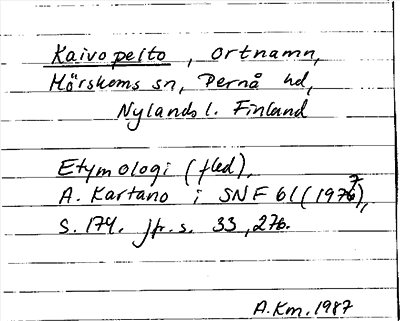 Kaivopelto, ortnamn,
Mörskoms sn, Pernå hd,
Nylands l. Finland
Etymologi (fled),
A. Kartano i SNF 61 (1977),
s. 174. jfr. s. 33, 276.
A.Km. 1987